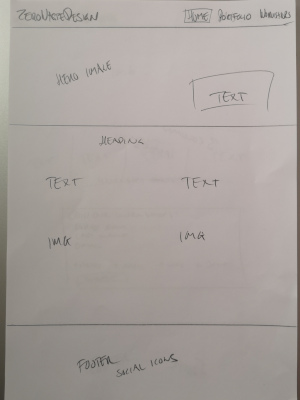 HOME PORTFOLIO
HERO IMAGE
TEXT
HEADING
TEXT TEXT
IMG IMG
FOOTER
SOCIAL ICONS